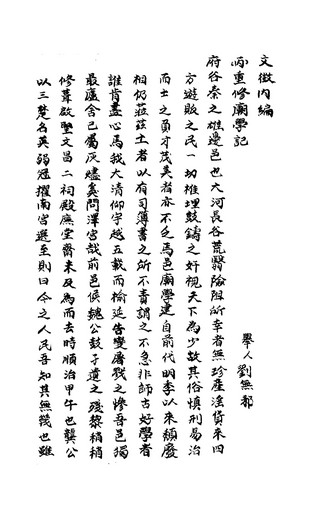 文徵內編
丙重修廟學記
舉人劉無部
府谷秦之雄邊邑也大河長谷荒翳險阻所幸者無珍產淫貨來四
方遊販之民一切推埋鼓鑄之奸視天下為少故其俗慎刑易治
而士之勇才茂美者亦不乏焉邑廟學建自前代明季以來頹廢
相仍蒞茲土者以有司簿書之所不責謂之不急非師古好學者
誰肯盡心焉我大清御宇越五載而榆延告變屠戮之慘吾邑獨
最廬舍已屬灰燼奚問澤宮哉前邑侯魏公鼓孑遺之殘黎稍稍
修葺啟聖文昌二祠殿廡堂齋未及為而去時順治甲午也龔公
以三楚名英弱冠擢南宮選至則曰今之人民吾知其無幾也雖